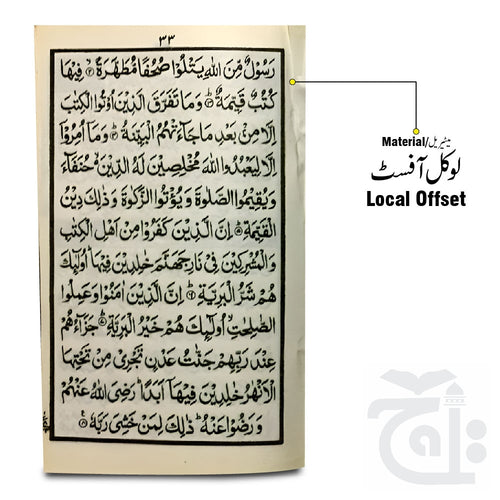 ٣٣
رَسُوْلٌ مِّنَ اللّٰهِ يَتْلُوْا صُحُفًا مُّطَهَّرَةً ۙ﴿۲﴾ فِيْهَا
كُتُبٌ قَيِّمَةٌ ؕ﴿۳﴾ وَمَا تَفَرَّقَ الَّذِيْنَ اُوْتُوا الْكِتٰبَ
اِلَّا مِنْۢ بَعْدِ مَا جَآءَتْهُمُ الْبَيِّنَةُ ؕ﴿۴﴾ وَمَاۤ اُمِرُوْۤا
اِلَّا لِيَعْبُدُوا اللّٰهَ مُخْلِصِيْنَ لَهُ الدِّيْنَ ۙ حُنَفَآءَ
وَيُقِيْمُوا الصَّلٰوةَ وَيُؤْتُوا الزَّكٰوةَ وَذٰلِكَ دِيْنُ
الْقَيِّمَةِ ؕ﴿۵﴾ اِنَّ الَّذِيْنَ كَفَرُوْا مِنْ اَهْلِ الْكِتٰبِ
وَالْمُشْرِكِيْنَ فِيْ نَارِ جَهَنَّمَ خٰلِدِيْنَ فِيْهَا ؕ اُولٰٓئِكَ
هُمْ شَرُّ الْبَرِيَّةِ ؕ﴿۶﴾ اِنَّ الَّذِيْنَ اٰمَنُوْا وَعَمِلُوا
الصّٰلِحٰتِ ۙ اُولٰٓئِكَ هُمْ خَيْرُ الْبَرِيَّةِ ؕ﴿۷﴾ جَزَآؤُهُمْ
عِنْدَ رَبِّهِمْ جَنّٰتُ عَدْنٍ تَجْرِيْ مِنْ تَحْتِهَا
الْاَنْهٰرُ خٰلِدِيْنَ فِيْهَاۤ اَبَدًا ؕ رَضِيَ اللّٰهُ عَنْهُمْ
وَرَضُوْا عَنْهُ ؕ ذٰلِكَ لِمَنْ خَشِيَ رَبَّهٗ ﴿۸﴾
Material/میٹیریل
لوکل آفسٹ
Local Offset